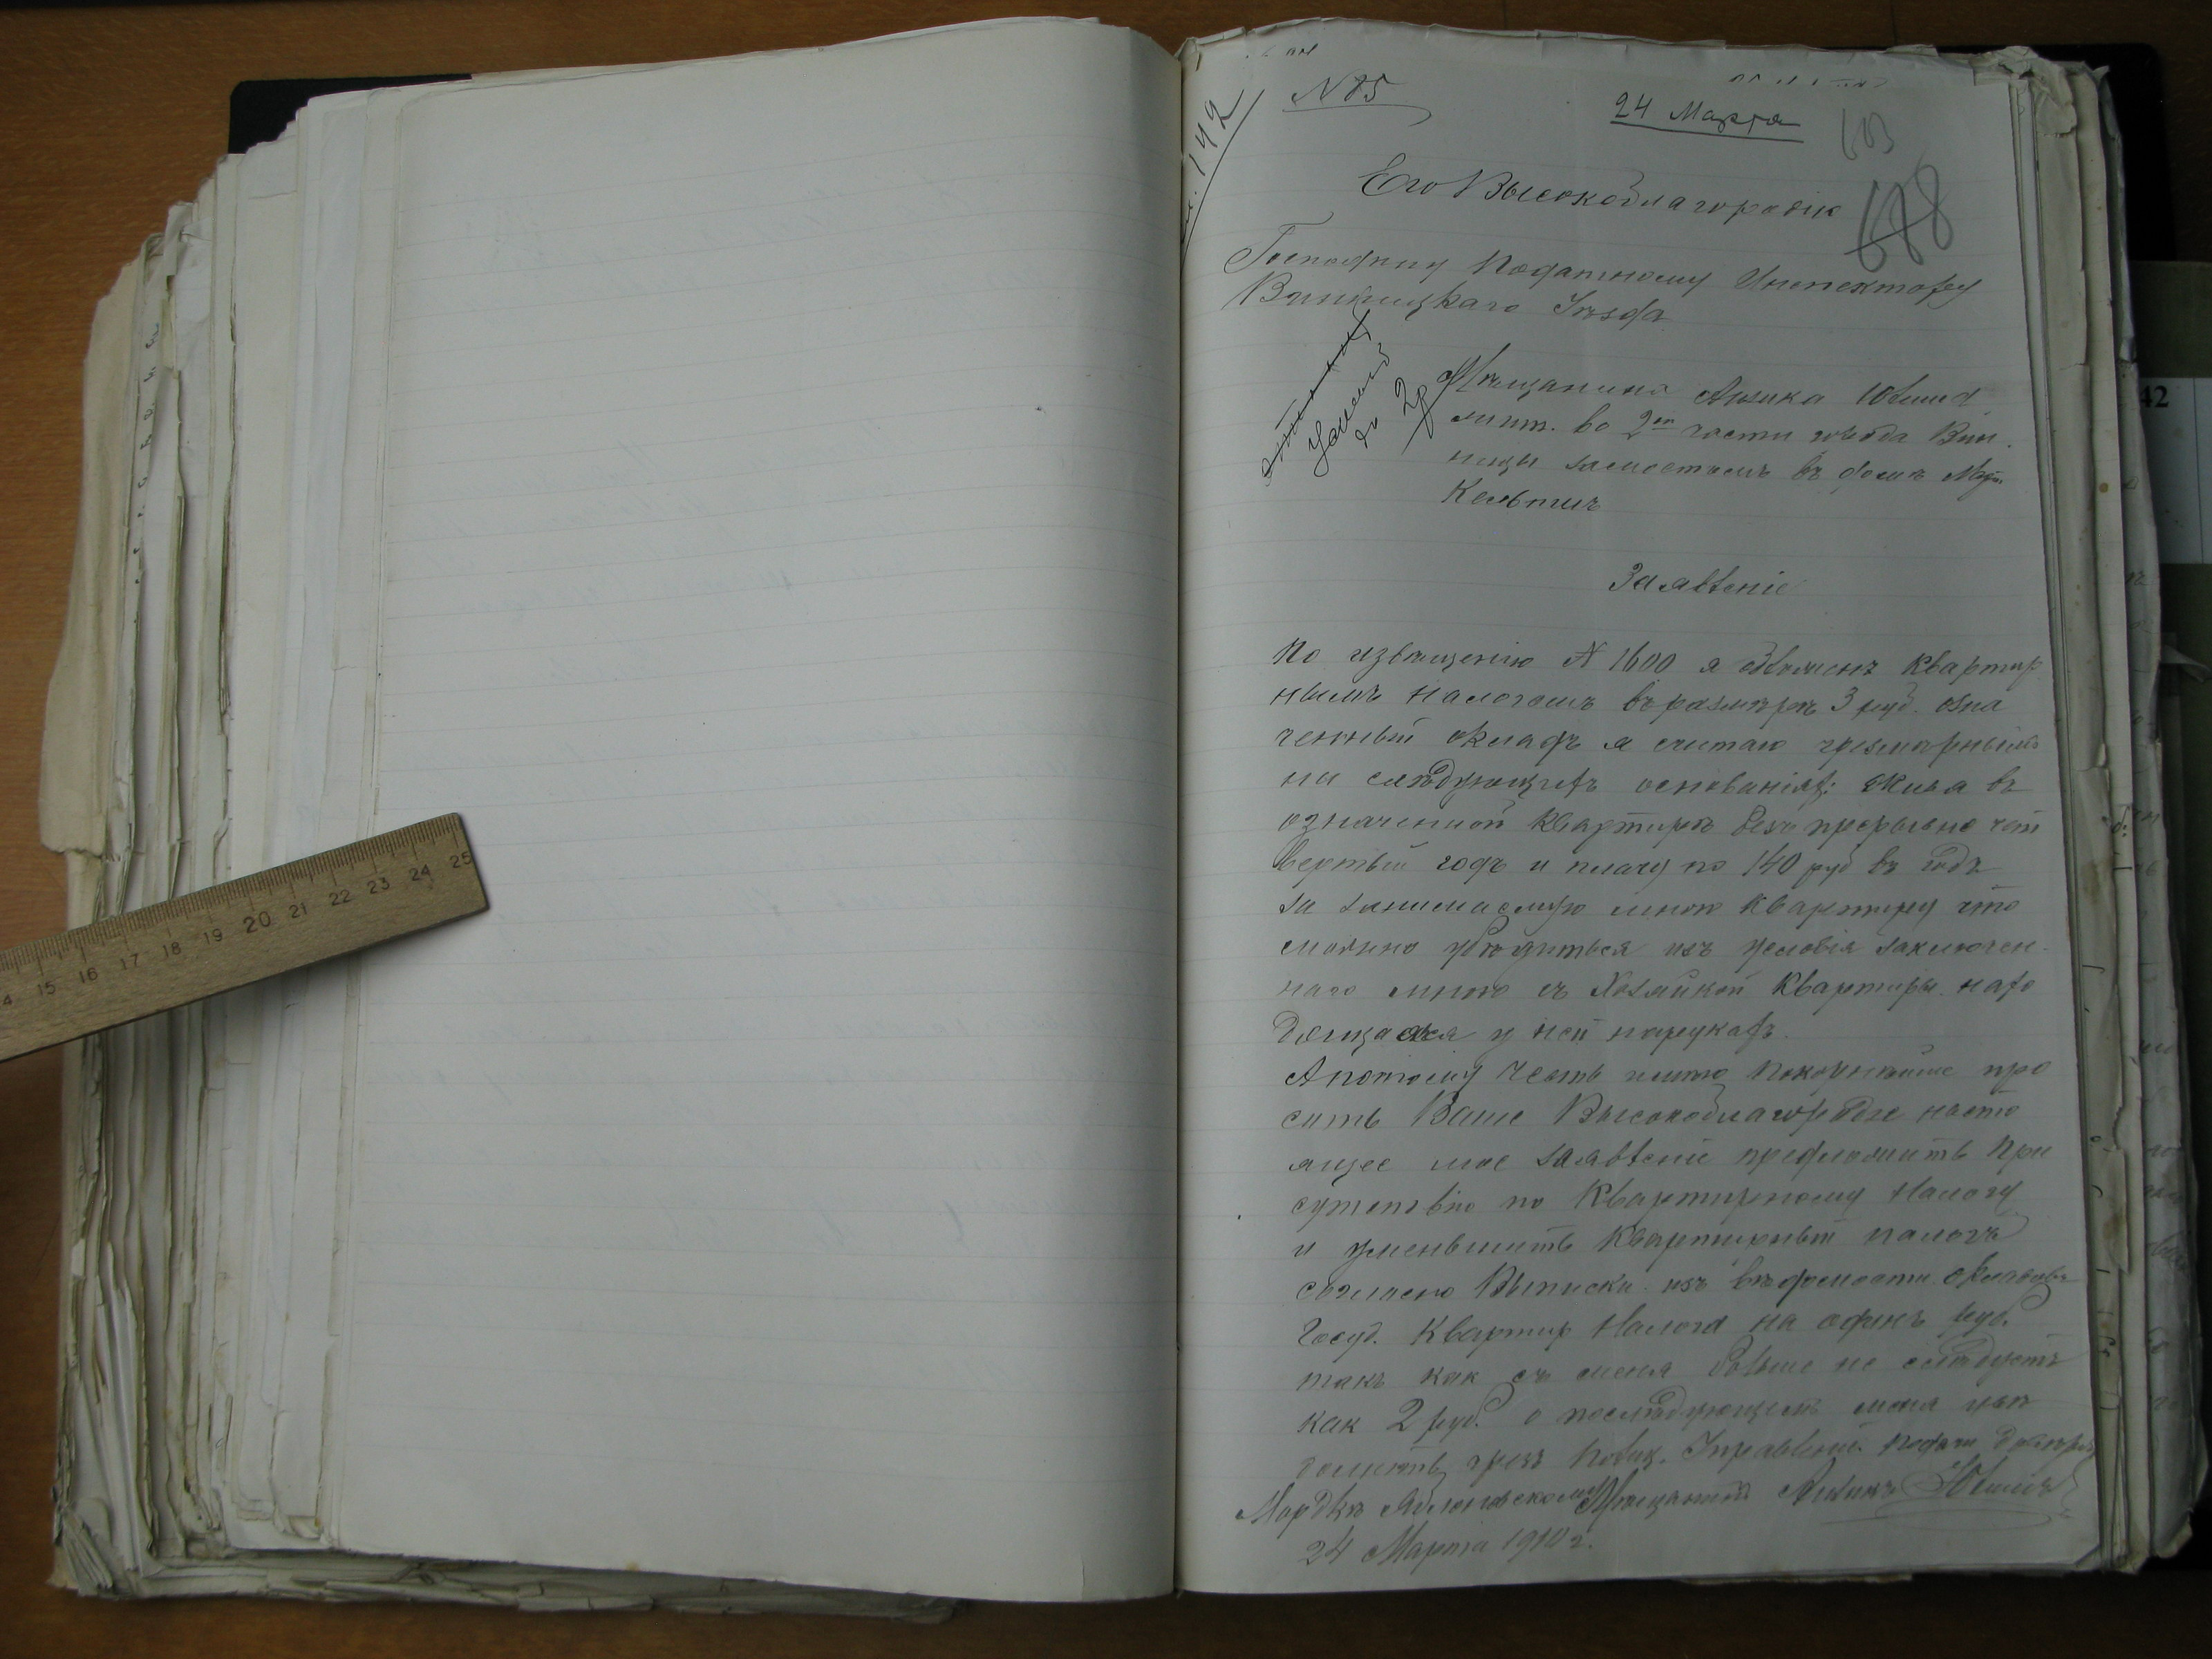 N 85
24 Марта
603
688
142
Его Высокоблагородію
Господину Податному Инспектору
Винницкаго Уѣзда
Уменьшить
до 2р
Мѣщанина Айзика
жит. во 2й части города Вин
ницы замостьемъ въ домѣ
Заявленіе
По извѣщенію N 1600 я обложенъ Квартир
нымъ Налогомъ въ размѣрѣ 3 руб. озна
ченный окладъ я считаю чрезмѣрнымъ
на слѣдующихъ основаніях: живя въ
означенной Квартирѣ безпрерывно чет
вертый годъ и плачу по 140 руб въ годъ
за занимаемую мною Квартиру что
можно убѣдиться изъ условія заключен
наго мною съ Хозяйкой Квартиры. нахо
дящаяся у ней на рукахъ.
А потому Честь имѣю покорнѣйше про
сить Ваше Высокоблагородіе насто
ящее мое заявленіе предложить При
сутствію по Квартирному Налогу
и уменьшить Квартирный налогъ
согласно Выписки изъ вѣдомости окладовъ
Госуд. Квартир Налога на одинъ руб.
такъ как съ меня больше не слѣдуетъ
как 2 руб. о послѣдующемъ меня увѣ
домить чрез Полиц. Управленіе.
Мѣщанинъ Айзикъ
24 Марта 1910 г.
42
14 15 16 17 18 19 20 21 22 23 24 25